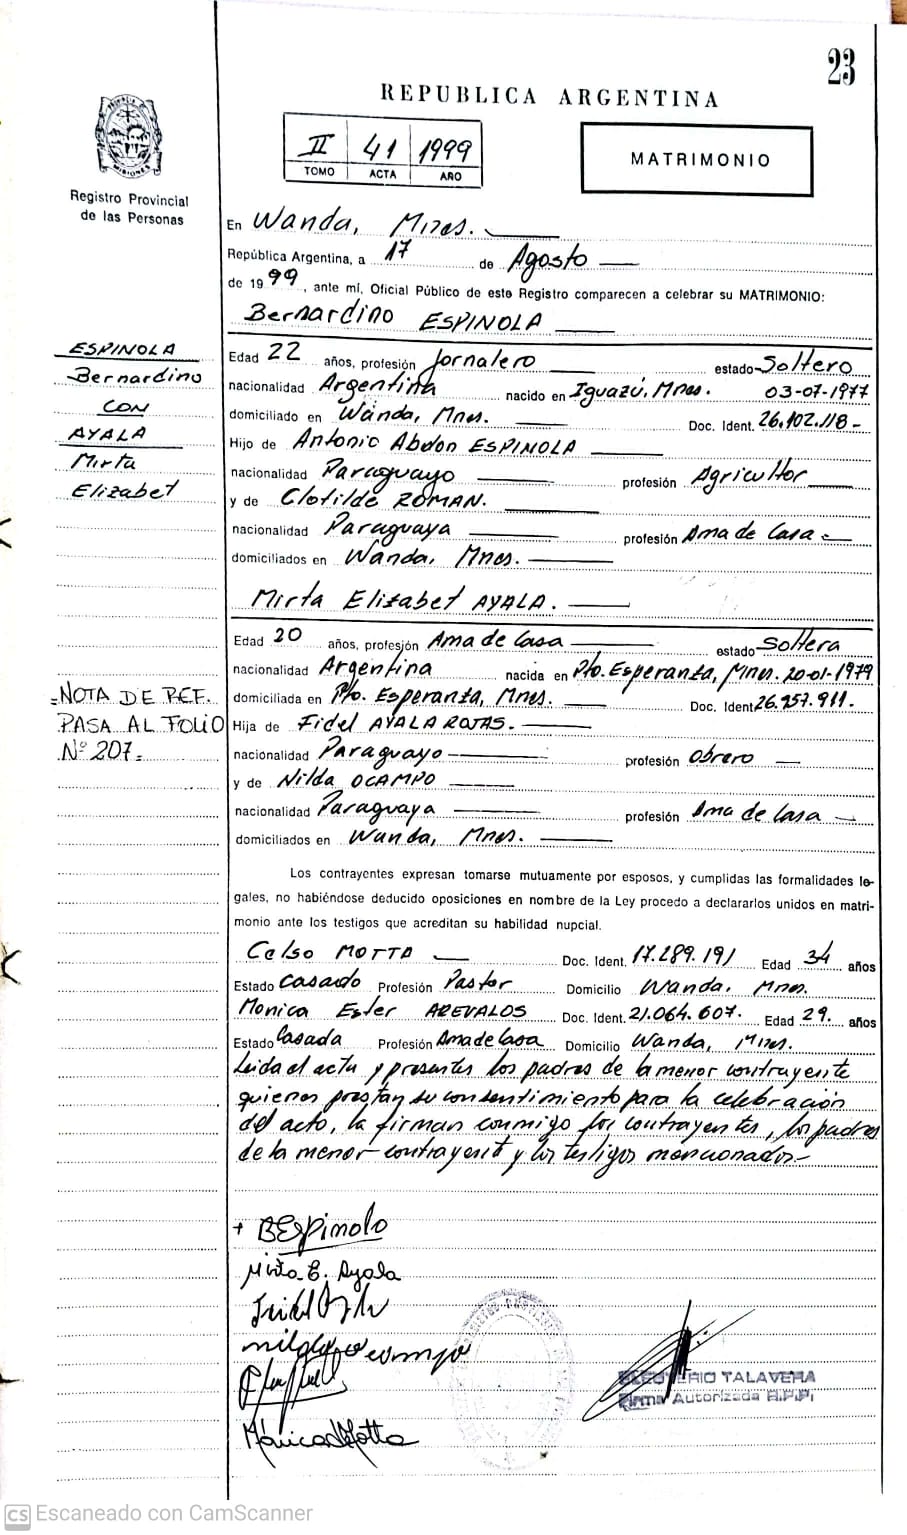 23
REPUBLICA ARGENTINA
II 41 1999
TOMO ACTA AÑO
MATRIMONIO
MISIONES
Registro Provincial
de las Personas
En Wanda, Mnes.
República Argentina, a 17 de Agosto
de 1999, ante mí, Oficial Público de este Registro comparecen a celebrar su MATRIMONIO:
Bernardino ESPINOLA
ESPINOLA
Bernardino
CON
AYALA
Mirta
Elizabet
Edad 22 años, profesión Jornalero estado Soltero
nacionalidad Argentina nacido en Iguazú, Mnes. 03-07-1977
domiciliado en Wanda, Mnes. Doc. Ident. 26.102.118-
Hijo de Antonio Abdon ESPINOLA
nacionalidad Paraguayo profesión Agricultor
y de Clotilde ROMAN.
nacionalidad Paraguaya profesión Ama de Casa
domiciliados en Wanda, Mnes.
Mirta Elizabet AYALA.
Edad 20 años, profesión Ama de Casa estado Soltera
nacionalidad Argentina nacida en Pto. Esperanza, Mnes. 20-01-1979
domiciliada en Pto. Esperanza, Mnes. Doc. Ident 26.957.911.
Hija de Fidel AYALA ROJAS.
nacionalidad Paraguayo profesión Obrero
y de Nilda OCAMPO
nacionalidad Paraguaya profesión Ama de Casa
domiciliados en Wanda, Mnes.
=NOTA DE REF.
PASA AL FOLIO
Nº 207=
Los contrayentes expresan tomarse mutuamente por esposos, y cumplidas las formalidades le-
gales, no habiéndose deducido oposiciones en nombre de la Ley procedo a declararlos unidos en matri-
monio ante los testigos que acreditan su habilidad nupcial.
Celso MOTTA Doc. Ident. 17.289.191 Edad 34 años
Estado Casado Profesión Pastor Domicilio Wanda, Mnes.
Monica Ester AREVALOS Doc. Ident. 21.064.607. Edad 29. años
Estado Casada Profesión Ama de Casa Domicilio Wanda, Mnes.
Leida el acta y presentes los padres de la menor contrayente
quienes prestan su consentimiento para la celebración
del acto, la firman conmigo los contrayentes, los padres
de la menor contrayente y los testigos mencionados-
+ BEspinola
Mirta E. Ayala
Monica de Motta
ELEUTERIO TALAVERA
Firma Autorizada R.P.P.
CS Escaneado con CamScanner